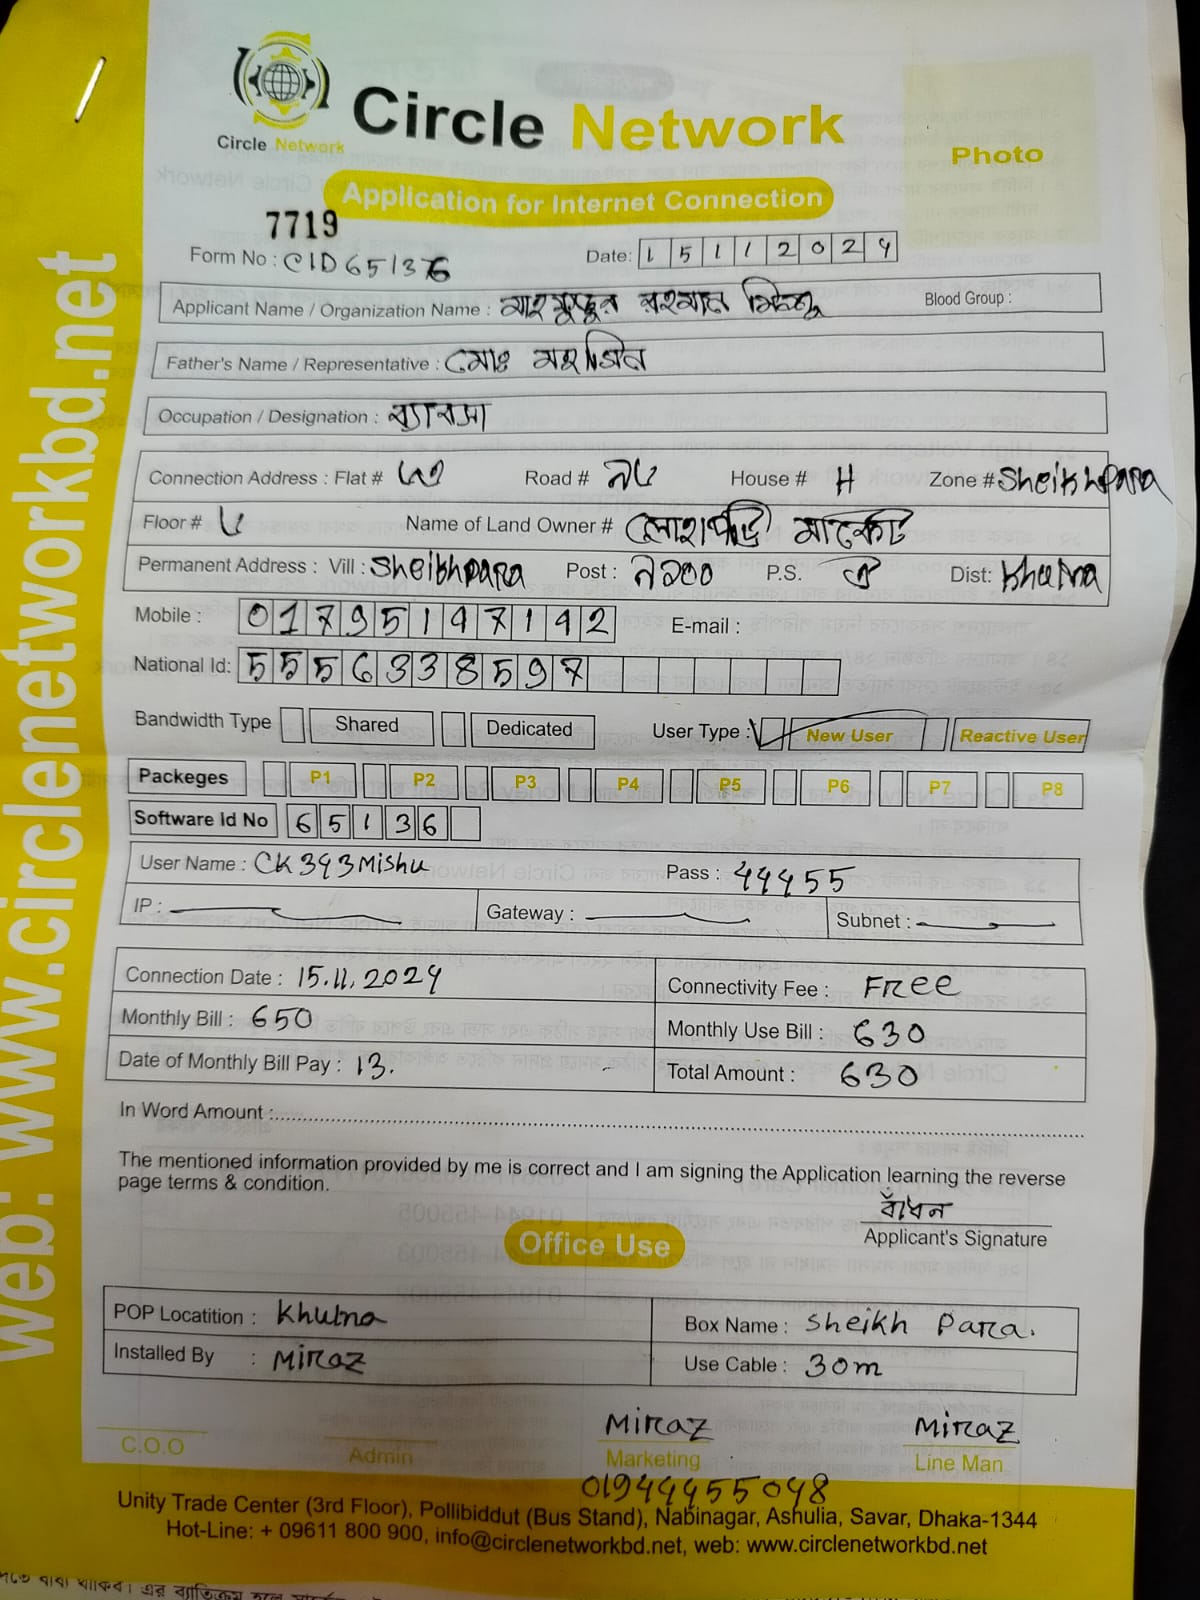 Circle Network
Circle Network
Photo
Application for Internet Connection
7719
Form No : CID 65136
Date: 15112024
Applicant Name / Organization Name : মাহফুজুর রহমান মিশু
Blood Group :
Father's Name / Representative : মোঃ মহসিন
Occupation / Designation : ব্যাবসা
Connection Address : Flat # Road # House # H Zone # Sheikhpara
Floor # Name of Land Owner # লোহাপট্টি মার্কেট
Permanent Address : Vill : Sheikhpara Post : ৯১০০ P.S. Dist: Khulna
Mobile : 01795197192 E-mail :
National Id: 5556338597
Bandwidth Type Shared Dedicated User Type : New User Reactive User
Packeges P1 P2 P3 P4 P5 P6 P7 P8
Software Id No 65136
User Name : CK393Mishu Pass : 44455
IP : Gateway : Subnet :
Connection Date : 15.11.2024 Connectivity Fee : Free
Monthly Bill : 650 Monthly Use Bill : 630
Date of Monthly Bill Pay : 13. Total Amount : 630
In Word Amount :
The mentioned information provided by me is correct and I am signing the Application learning the reverse
page terms & condition.
বাঁধন
Applicant's Signature
Office Use
POP Locatition : Khulna Box Name : Sheikh Para.
Installed By : Miraz Use Cable : 30m
Miraz Miraz
C.O.O Admin Marketing Line Man
01944455048
Unity Trade Center (3rd Floor), Pollibiddut (Bus Stand), Nabinagar, Ashulia, Savar, Dhaka-1344
Hot-Line: + 09611 800 900, info@circlenetworkbd.net, web: www.circlenetworkbd.net
web: www.circlenetworkbd.net